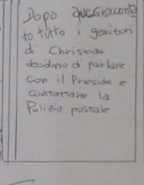 Dopo aver raccont
to tutto i genitori
di Christian
decidono di parlare
con il Preside e
contattare la
Polizia postale